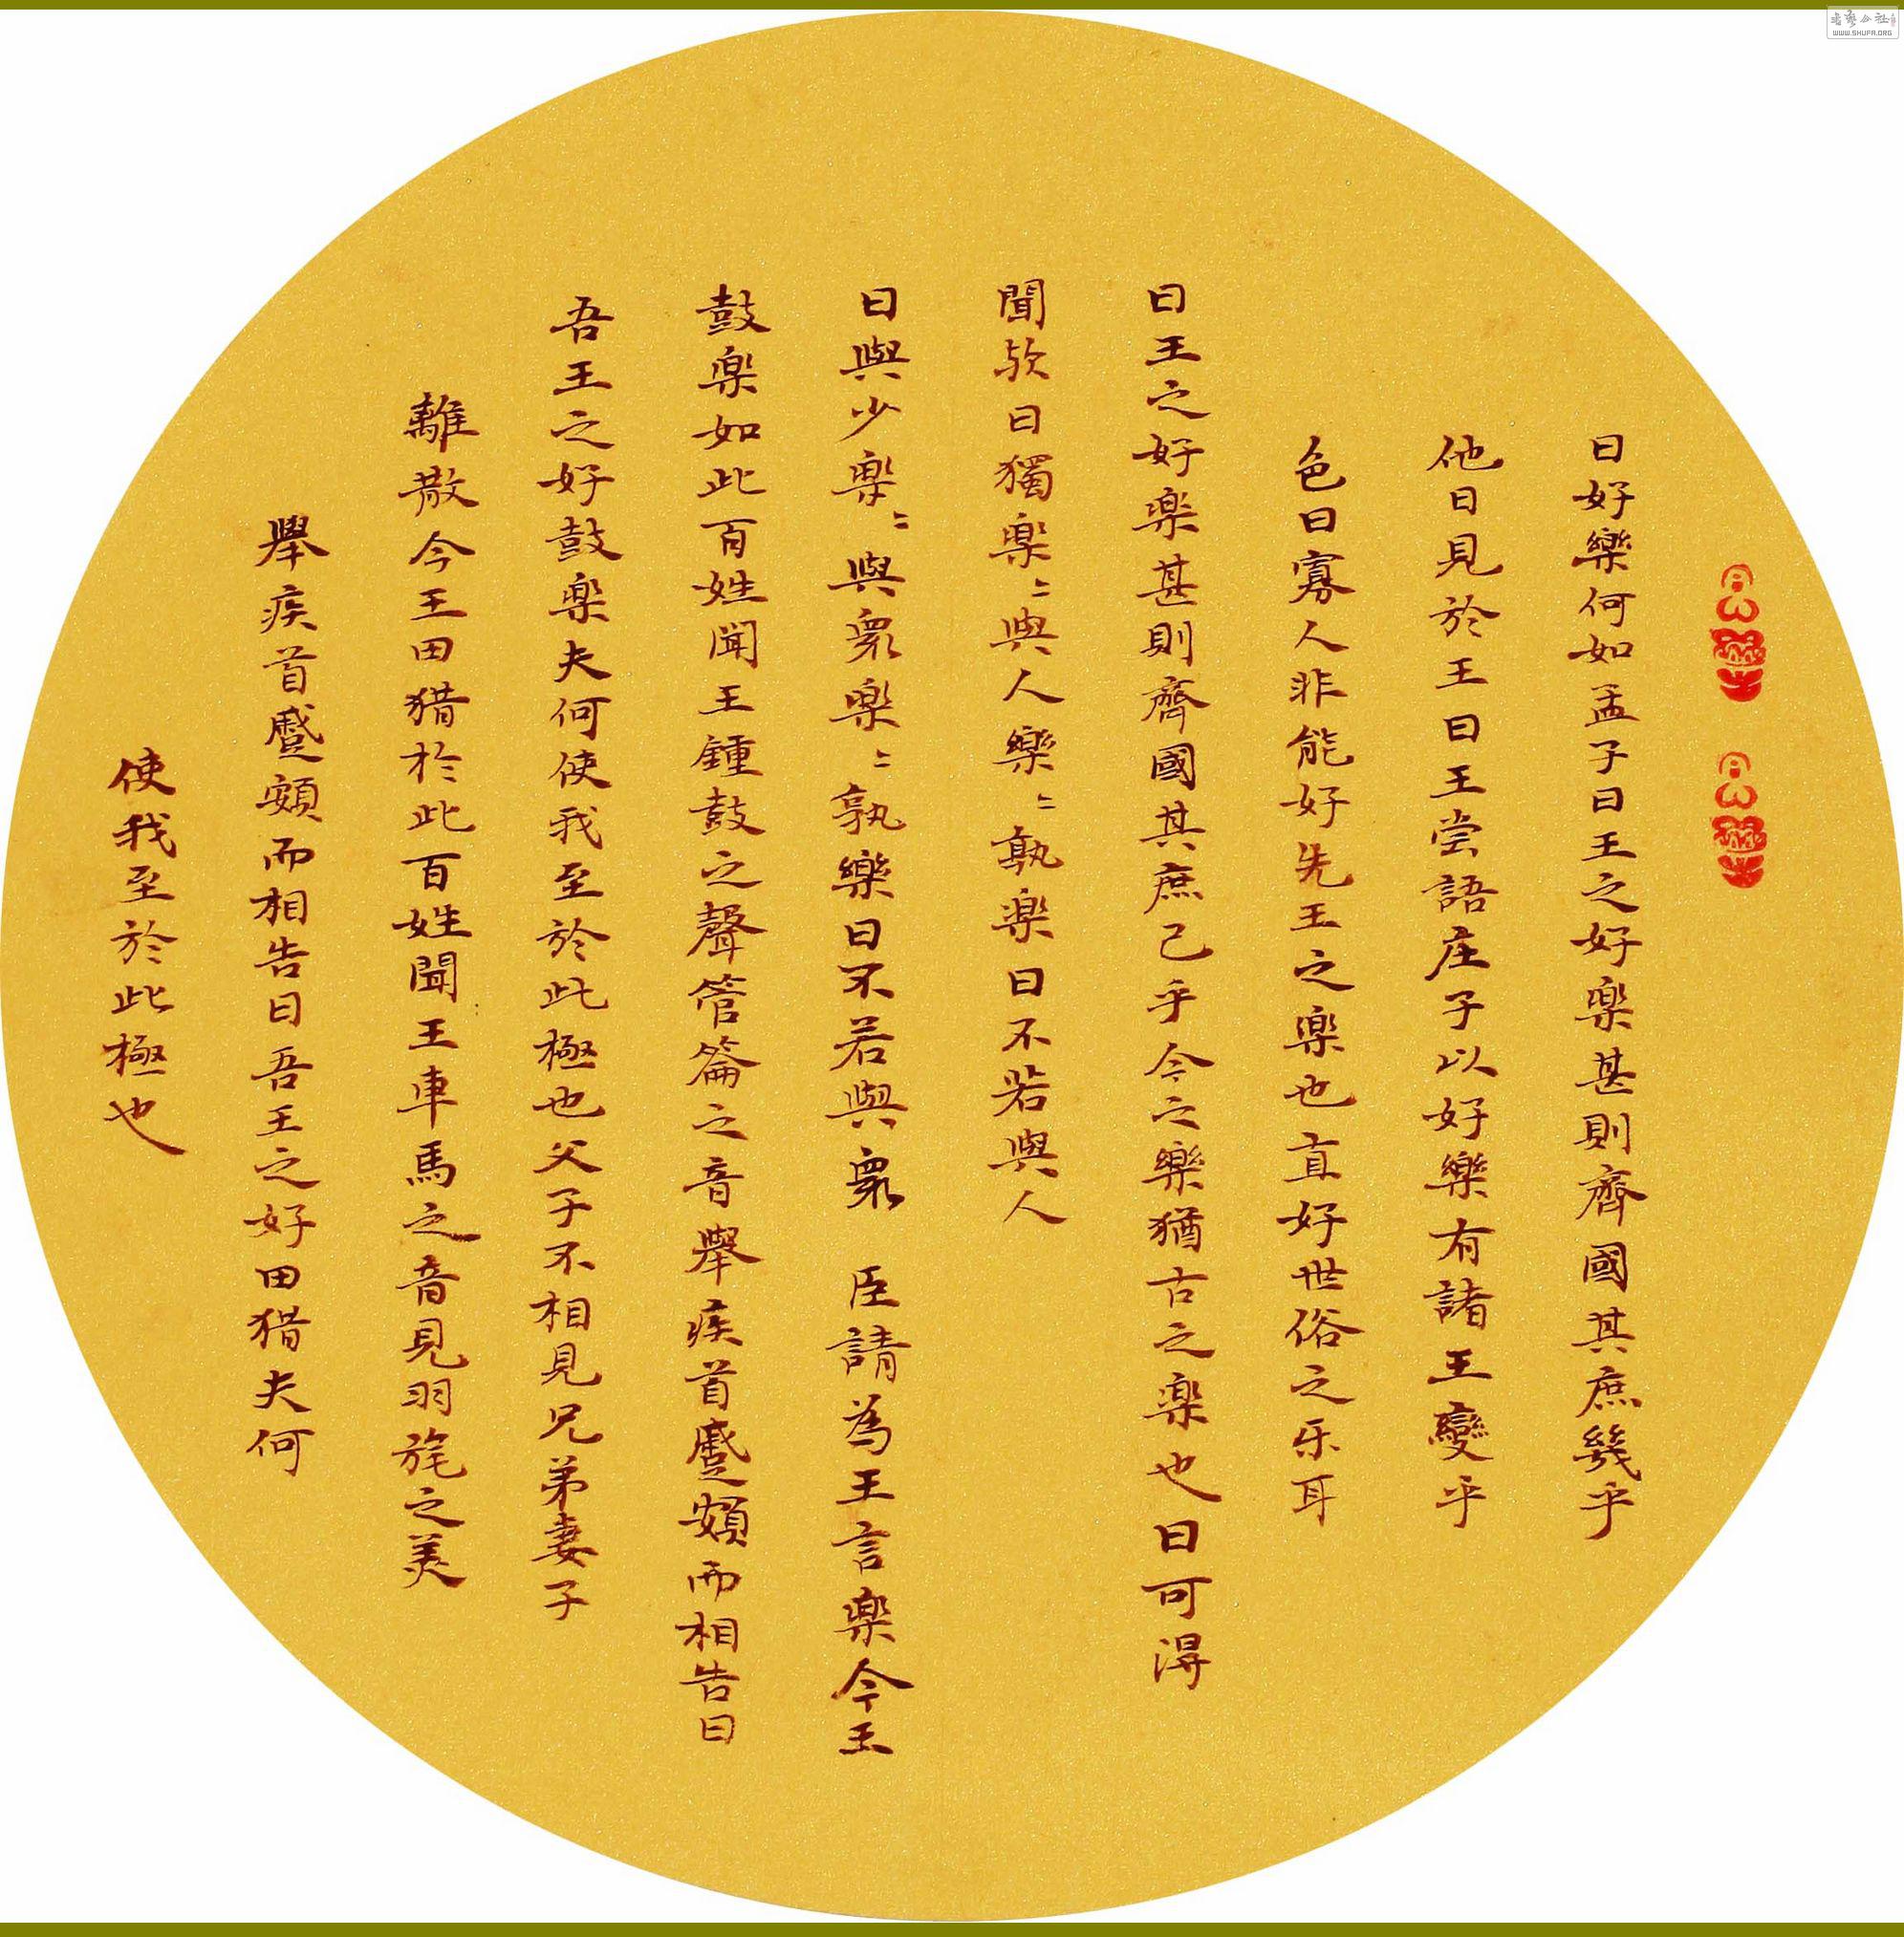 曰好樂何如孟子曰王之好樂甚則齊國其庶幾乎
他日見於王曰王尝語庄子以好樂有諸王變乎
色曰寡人非能好先王之樂也直好世俗之乐耳
曰王之好樂甚則齊國其庶已乎今之樂猶古之樂也曰可淂
聞欤曰獨樂〻與人樂〻孰樂曰不若與人
曰與少樂〻與衆樂〻孰樂曰不若與衆 臣請為王言樂今王
鼓樂如此百姓聞王鍾鼓之聲管籥之音舉疾首蹙頞而相告曰
吾王之好鼓樂夫何使我至於此極也父子不相見兄弟妻子
離散今王田猎於此百姓聞王車馬之音見羽旄之美
舉疾首蹙頞而相告曰吾王之好田猎夫何
使我至於此極也
WWW.SHUFA.ORG